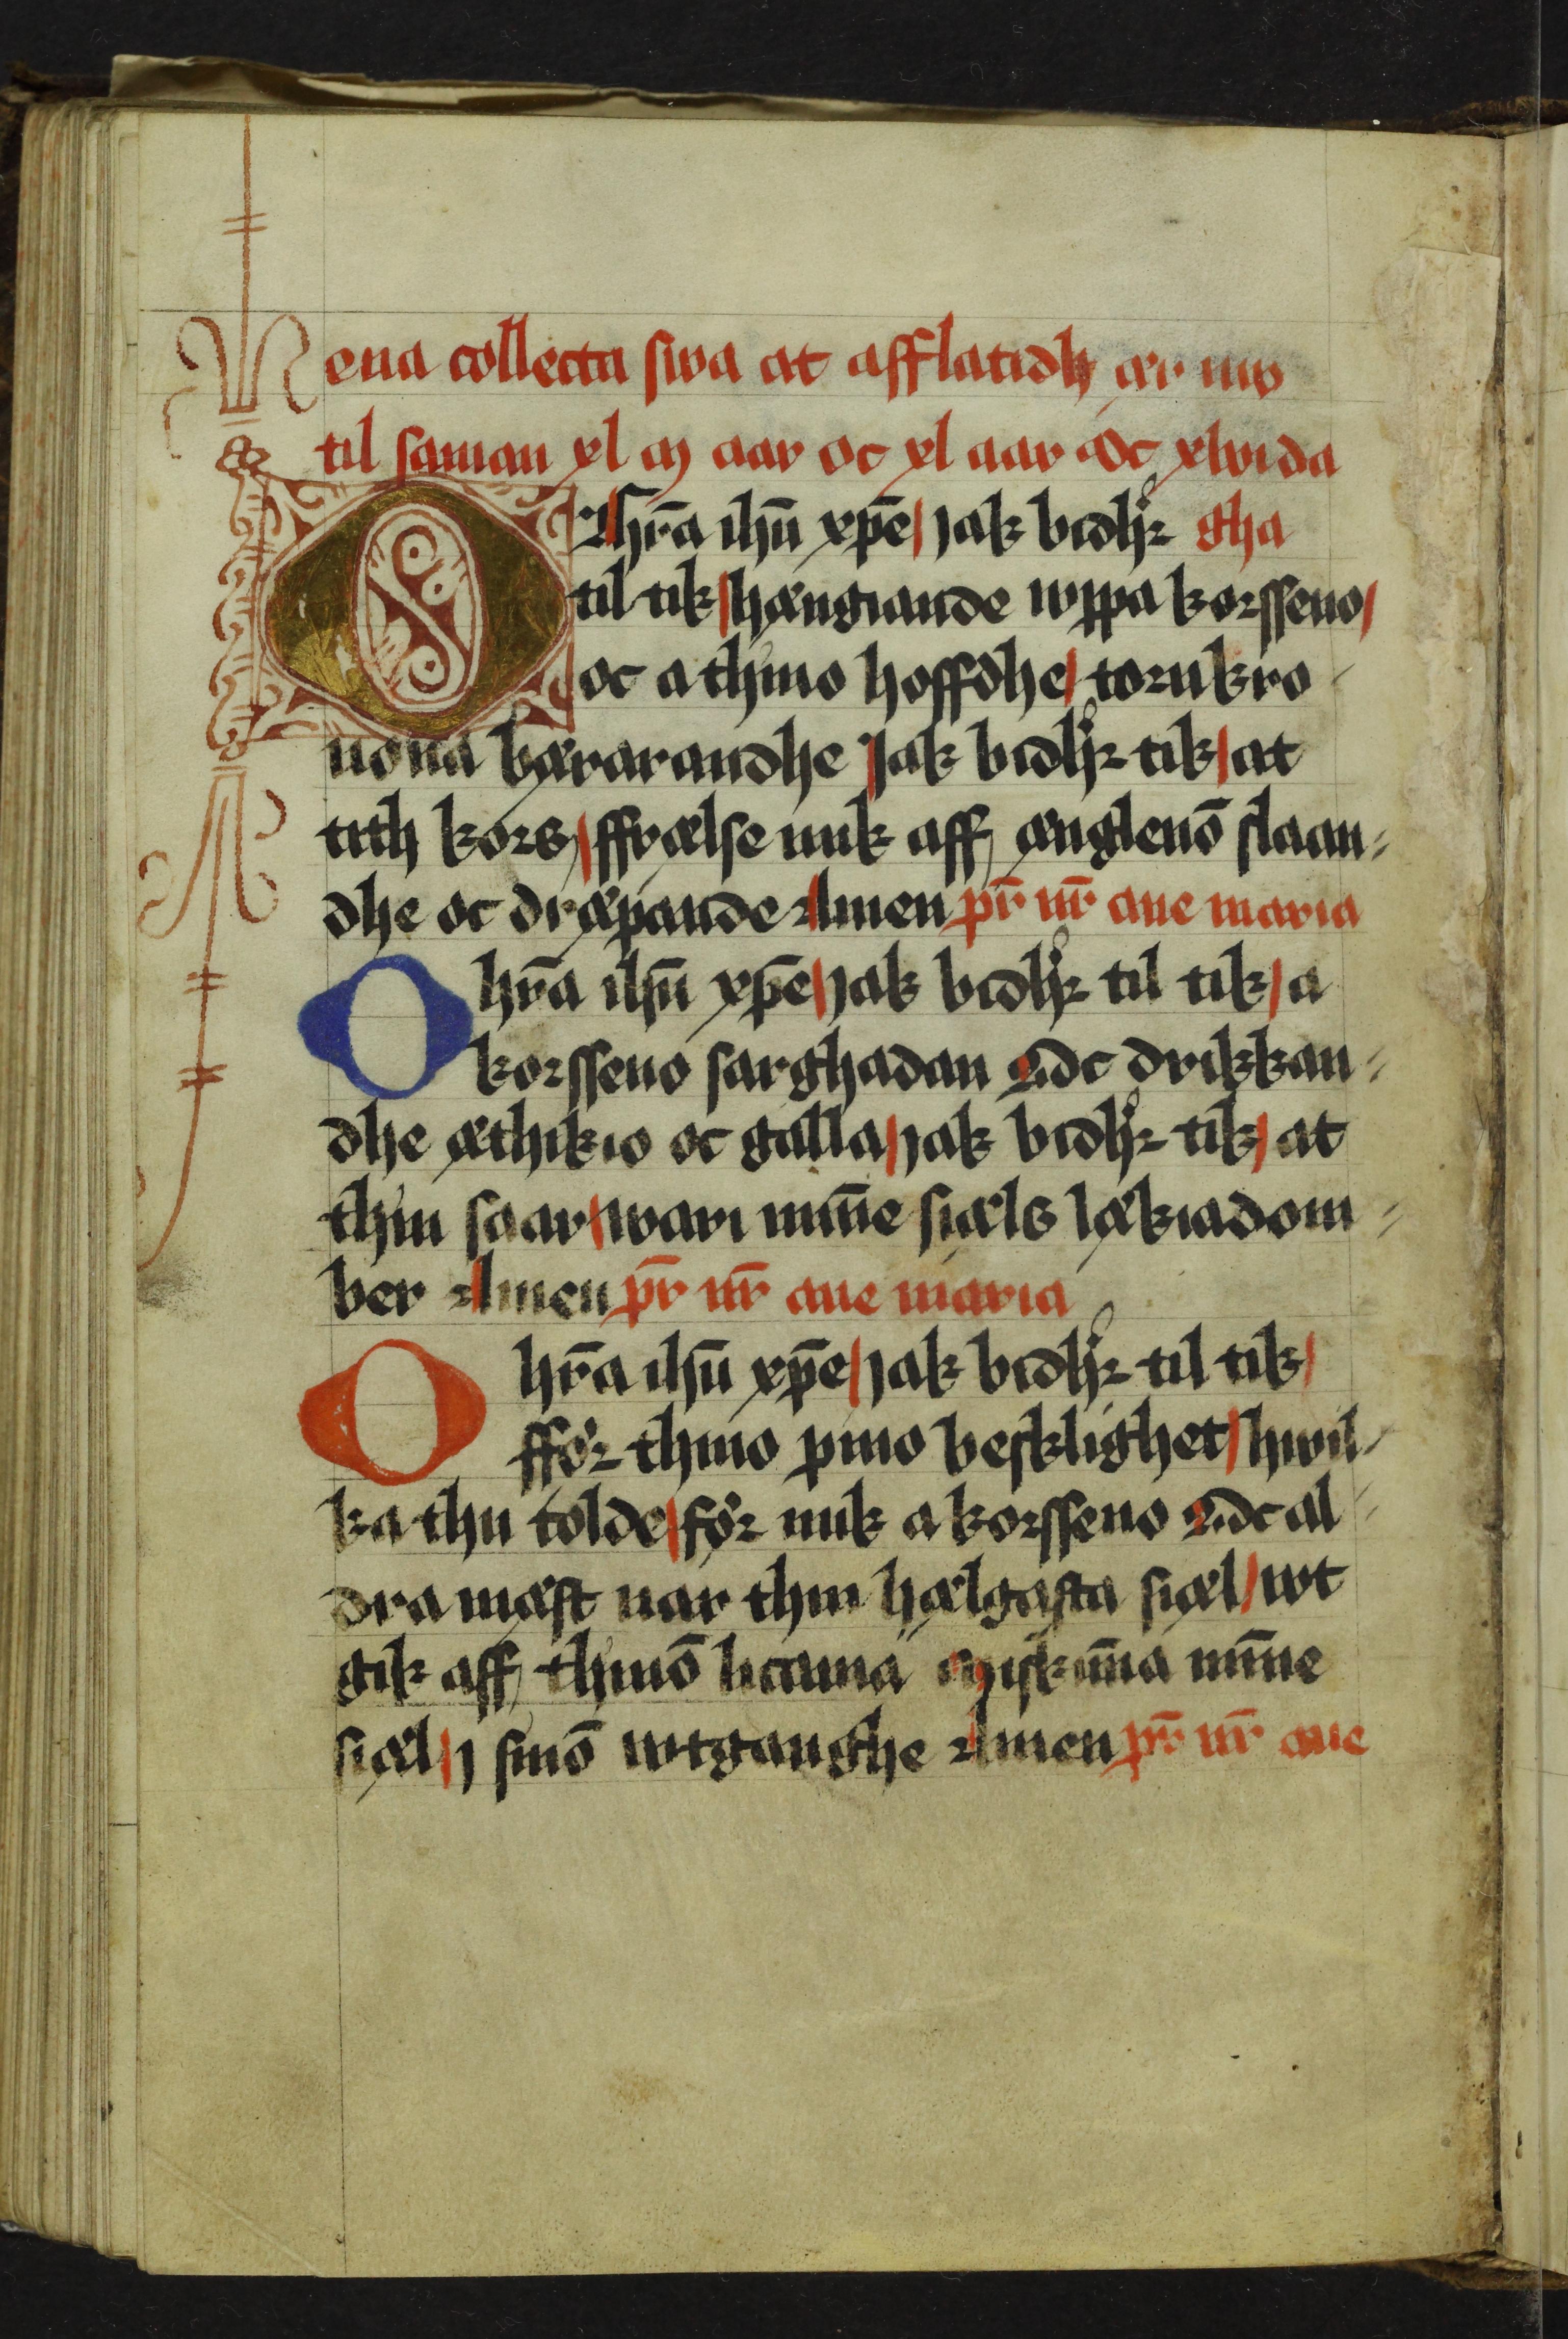 ena collecta swa at afflatidh ær nw
til saman xl m aar oc xl aar Oc xlvida
O Ahr̄a ihū xp̄e / jak bidhꝛ gha
til tik / hængiande wppa korsseno /
oc a thino hoffdhe / tornkro
nona bærarandhe Jak bidhꝛ tik / at
tith kors / ffrælse mik aff ænglenō slaan
dhe oc dræpande Amen pr̄ nr̄ aue maria
O hr̄a ihū xp̄e / jak bidhꝛ til tik / a
korsseno sarghadan Oc drikkan
dhe æthikio oc galla / jak bidhꝛ tik / at
thin saar / wari min̄e siæls lækiadom
ber Amen pr̄ nr̄ aue maria
O hr̄a ihū xp̄e / jak bidhꝛ til tik /
ffør thino pino besklighet / hwil
ka thu tolde / før mik a korsseno Oc al
dra mæst nar thin hælgasta siæl / wt
gik aff thinō licama Miskun̄a min̄e
siæl / j sinō wtganghe Amen pr̄ nr̄ aue